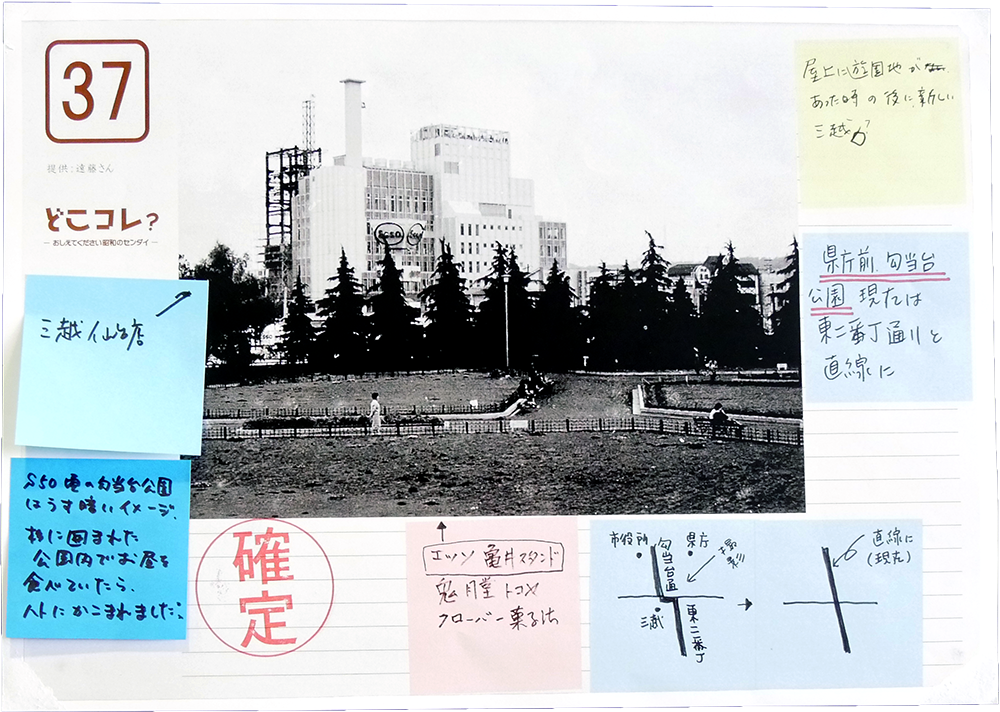 37
提供：遠藤さん
どこコレ？
― おしえてください昭和のセンダイ ―
三越仙台店
S50頃の勾当台公園
はうす暗いイメージ。
杉に囲まれた
公園内でお昼を
食べていたら、
ハトにかこまれました。
Esso
屋上に遊園地が
あった時の後に、新しい
三越か?
県庁前、勾当台
公園 現在は
東二番丁通りと
直線に
確定
エッソ 亀井スタンド
鬼月堂
クローバー菓子店
市役所
勾当台通
県庁
撮影
三越
東二番丁
直線に
(現在)